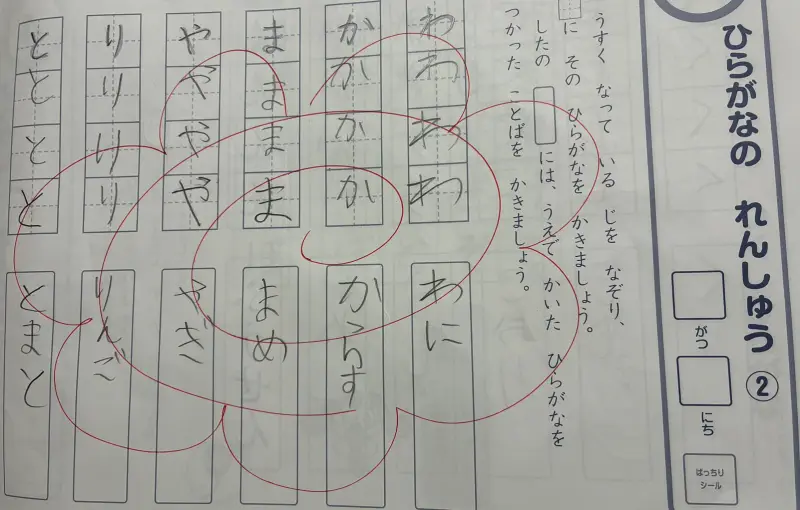 ひらがなの れんしゅう ②
がつ
にち
ばっちり
シール
うすく なって いる じを なぞり、
に その ひらがなを かきましょう。
したの には、うえで かいた ひらがなを
つかった ことばを かきましょう。
わ わ わ わ
わに
か か か か
からす
ま ま ま ま
まめ
や や や や
やぎ
り り け り
りんご
と と と と
とまと